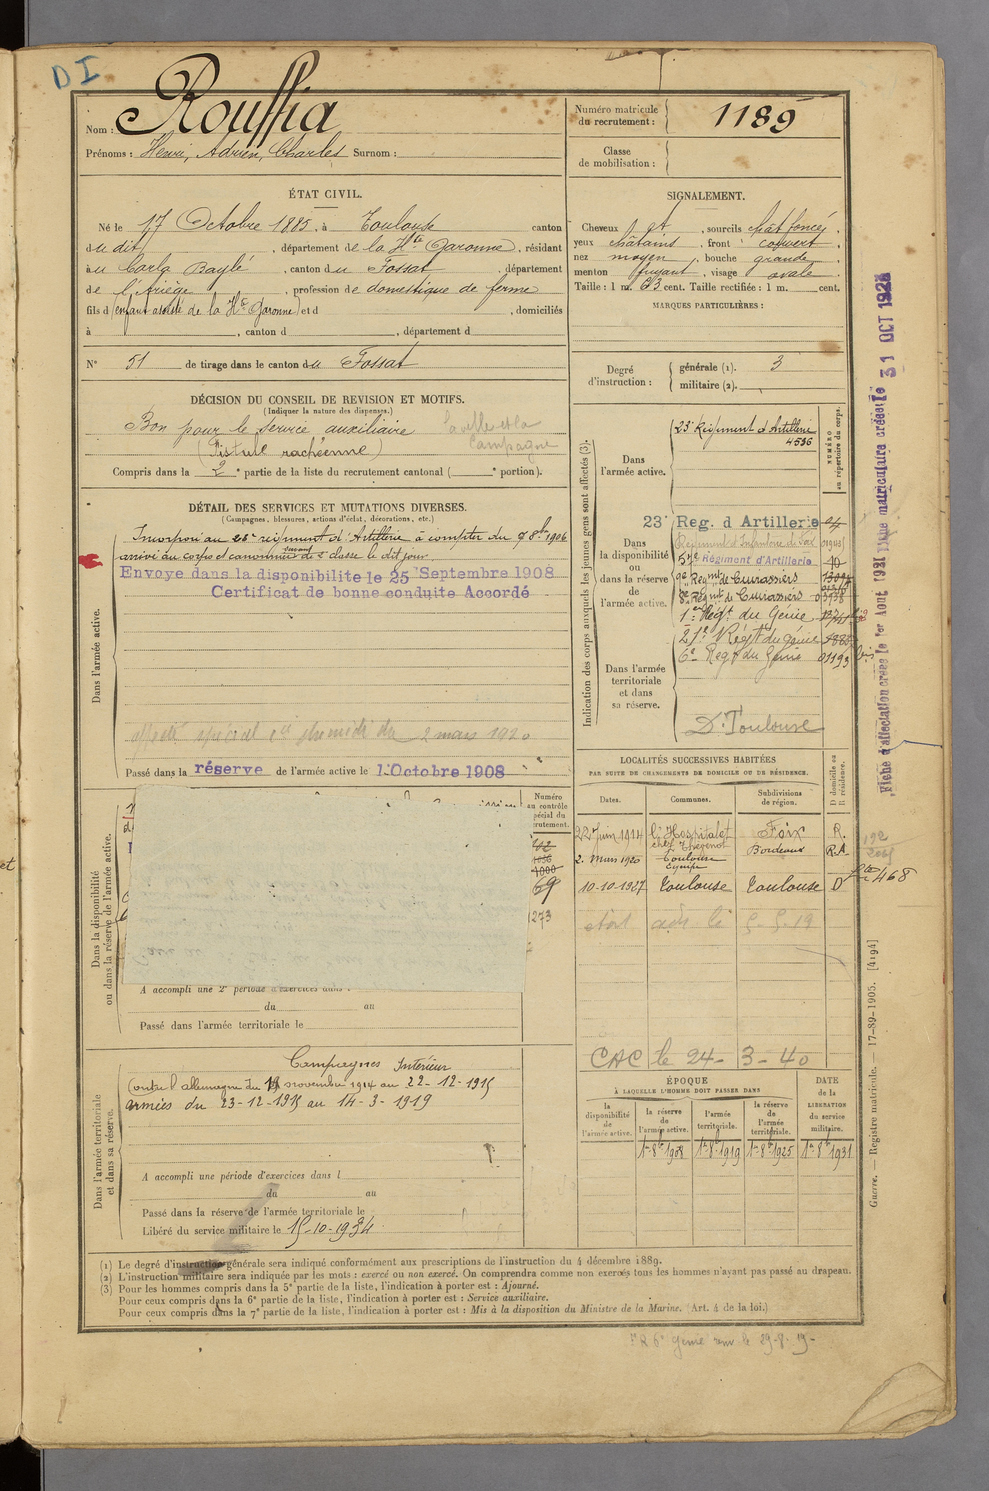 D I
Nom : Rouffia
Prénoms : Henri, Adrien, Charles Surnom :
Numéro matricule du recrutement : 1189
Classe de mobilisation :
ÉTAT CIVIL.
Né le 17 Octobre 1885, à Toulouse canton
du dit, département de la Hte Garonne, résidant
au Carla Baylé, canton du Fossat, département
de l'Ariège, profession de domestique de ferme
fils d (enfant assisté de la Hte Garonne) et d , domiciliés
à , canton d , département d
N° 51 de tirage dans le canton du Fossat
SIGNALEMENT.
Cheveux et , sourcils chât foncé,
yeux châtains, front couvert,
nez moyen, bouche grande,
menton fuyant, visage ovale.
Taille : 1 m. 63 cent. Taille rectifiée : 1 m. cent.
MARQUES PARTICULIÈRES :
Degré d'instruction : générale (1). 3
militaire (2).
DÉCISION DU CONSEIL DE REVISION ET MOTIFS.
(Indiquer la nature des dispenses.)
Bon pour le service auxiliaire
(Fistule rachéenne)
Compris dans la 2e partie de la liste du recrutement cantonal ( e portion).
DÉTAIL DES SERVICES ET MUTATIONS DIVERSES.
(Campagnes, blessures, actions d'éclat, décorations, etc.)
Dans l'armée active.
Incorporé au 23e régiment d'Artillerie à compter du 7 8bre 1906
arrivé au corps et canonnier servant de 2e classe le dit jour.
Envoyé dans la disponibilité le 25 Septembre 1908
Certificat de bonne conduite Accordé
affecté spécial 2 mars 1920
Passé dans la réserve de l'armée active le 1 Octobre 1908
Indication des corps auxquels les jeunes gens sont affectés (3).
NUMÉRO au répertoire du corps.
Dans l'armée active.
23e Régiment d'Artillerie
4536
23e Reg. d Artillerie
Dans la disponibilité ou dans la réserve de l'armée active.
Régiment d'Infanterie de Foix
Régiment d'Artillerie 10
9e Regmt de Cuirassiers
8e Regmt de Cuirassiers
1er Régt du Génie
21e Regt du génie
6e Regt du Génie 01193
Dans l'armée territoriale et dans sa réserve.
D. Toulouse
Dans la disponibilité ou dans la réserve de l'armée active.
Numéro au contrôle spécial du recrutement.
1000
69
273
A accompli une 2e période d'exercices dans l
du au
Passé dans l'armée territoriale le
LOCALITÉS SUCCESSIVES HABITÉES
PAR SUITE DE CHANGEMENTS DE DOMICILE OU DE RÉSIDENCE.
Dates. Communes. Subdivisions de région. D domicile ou R résidence.
22 Juin 1914 l'Hospitalet Foix R.
2. Mars 1920 Toulouse Bordeaux R.A.
10-10-1927 Toulouse Toulouse D
468
CAC le 24-3-40
Dans l'armée territoriale et dans sa réserve.
Campagnes Intérieur
Contre l'allemagne du 14 novembre 1914 au 22-12-1915
armées du 23-12-1915 au 14-3-1919
A accompli une période d'exercices dans l
du au
Passé dans la réserve de l'armée territoriale le
Libéré du service militaire le 15-10-1934
ÉPOQUE
À LAQUELLE L'HOMME DOIT PASSER DANS
la disponibilité de l'armée active.
la réserve de l'armée active.
l'armée territoriale.
la réserve de l'armée territoriale.
DATE de la LIBÉRATION du service militaire.
1er 8bre 1908 1er 8bre 1919 1er 8bre 1925 1er 8bre 1931
(1) Le degré d'instruction générale sera indiqué conformément aux prescriptions de l'instruction du 4 décembre 1889.
(2) L'instruction militaire sera indiquée par les mots : exercé ou non exercé. On comprendra comme non exercés tous les hommes n'ayant pas passé au drapeau.
(3) Pour les hommes compris dans la 5e partie de la liste, l'indication à porter est : Ajourné.
Pour ceux compris dans la 6e partie de la liste, l'indication à porter est : Service auxiliaire.
Pour ceux compris dans la 7e partie de la liste, l'indication à porter est : Mis à la disposition du Ministre de la Marine. (Art. 4 de la loi.)
Fiche d'affectation créée le 1er Aout 1921 Fiche matriculaire créée le 31 OCT 1928
Guerre. — Registre matricule. — 17-89-1905. [4194]